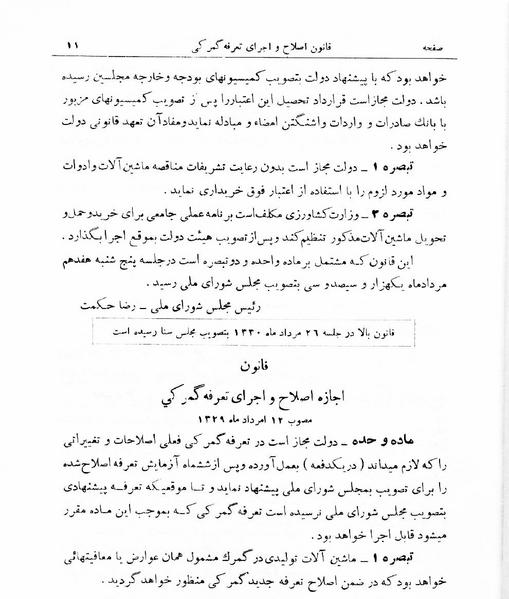 صفحه قانون اصلاح و اجرای تعرفه گمرکی ۱۱
خواهد بود که با پیشنهاد دولت بتصویب کمیسیونهای بودجه وخارجه مجلسین رسیده
باشد . دولت مجاز است قرارداد تحصیل این اعتبار را پس از تصویب کمیسیونهای مزبور
با بانک صادرات و واردات واشنگتن امضاء و مبادله نماید و مفاد آن تعهد قانونی دولت
خواهد بود .
تبصره ۱ – دولت مجاز است بدون رعایت تشریفات مناقصه ماشین آلات و ادوات
و مواد مورد لزوم را با استفاده از اعتبار فوق خریداری نماید .
تبصره ۳ – وزارت کشاورزی مکلف است برنامه عملی جامعی برای خرید و حمل و
تحویل ماشین آلات مذکور تنظیم کند و پس از تصویب هیئت دولت بموقع اجرا بگذارد .
این قانون که مشتمل بر ماده واحده و دو تبصره است در جلسه پنج شنبه هفدهم
مرداد ماه یکهزار و سیصد و سی بتصویب مجلس شورای ملی رسید .
رئیس مجلس شورای ملی – رضا حکمت
قانون بالا در جلسه ۲۶ مرداد ماه ۱۳۳۰ بتصویب مجلس سنا رسیده است
قانون
اجازه اصلاح و اجرای تعرفه گمرکی
مصوب ۱۲ امرداد ماه ۱۳۲۹
ماده و حده – دولت مجاز است در تعرفه گمرکی فعلی اصلاحات و تغییراتی
را که لازم میداند ( در یکدفعه ) بعمل آورده و پس از ششماه آزمایش تعرفه اصلاح شده
را برای تصویب بمجلس شورای ملی پیشنهاد نماید و تا موقعیکه تعرفه پیشنهادی
بتصویب مجلس شورای ملی نرسیده است تعرفه گمرکی که بموجب این ماده مقرر
میشود قابل اجرا خواهد بود .
تبصره ۱ – ماشین آلات تولیدی در گمرک مشمول همان عوارض یا معافیتهائی
خواهد بود که در ضمن اصلاح تعرفه جدید گمرکی منظور خواهد گردید .